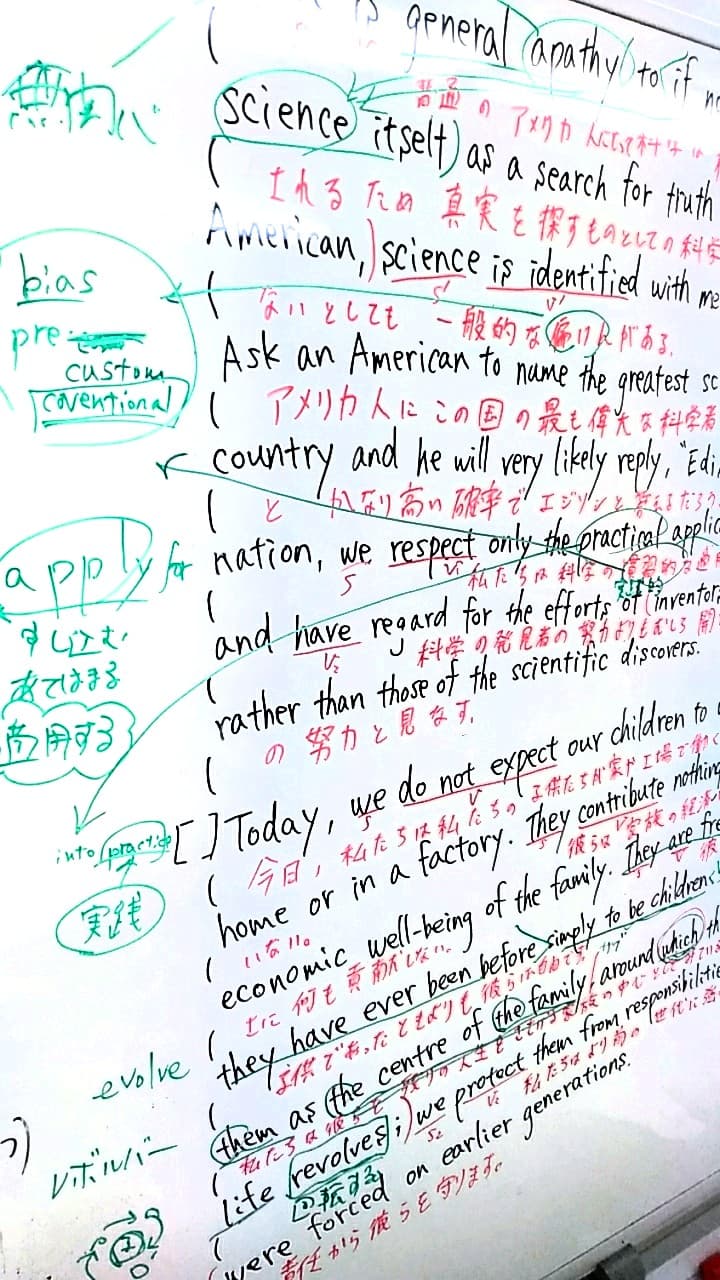 general apathy to if
無関心
science itself) as a search for truth
普通 の アメリカ 人にとって科学は
されるため 真実 を 探すものとしての科学
American,) science is identified with me
S' V'
ないとしても 一般的な 偏けんがある.
bias
pre
custom
coventional
Ask an American to name the greatest sc
アメリカ人に この国の最も偉大な科学者
country and he will very likely reply, "Edi
と かなり高い確率で エジソンと答えるだろう
nation, we respect only the practical applic
S V1
私たちは科学の
apply for
申し込む
あてはまる
応用する
and have regard for the efforts of (inventor
V2
科学の発見者の努力よりもむしろ
rather than those of the scientific discovers.
の努力と見なす.
[ ] Today, we do not expect our children to
S V
今日, 私たちは私たちの子供たちが家や工場で働く
into practice
実践
home or in a factory. They contribute nothing
S V
彼らは家族の経済
いない。
economic well-being of the family. They are fre
S V 彼
に何も貢献しない.
they have ever been before simply to be children;
子供であったときよりも彼らは自由です
evolve
them as the centre of the family around which th
私たちは彼らを
レボルバー
life revolves; we protect them from responsibilities
S2 V2 私たちはより前の世代に
回転する
were forced on earlier generations.
責任から彼らを守ります。